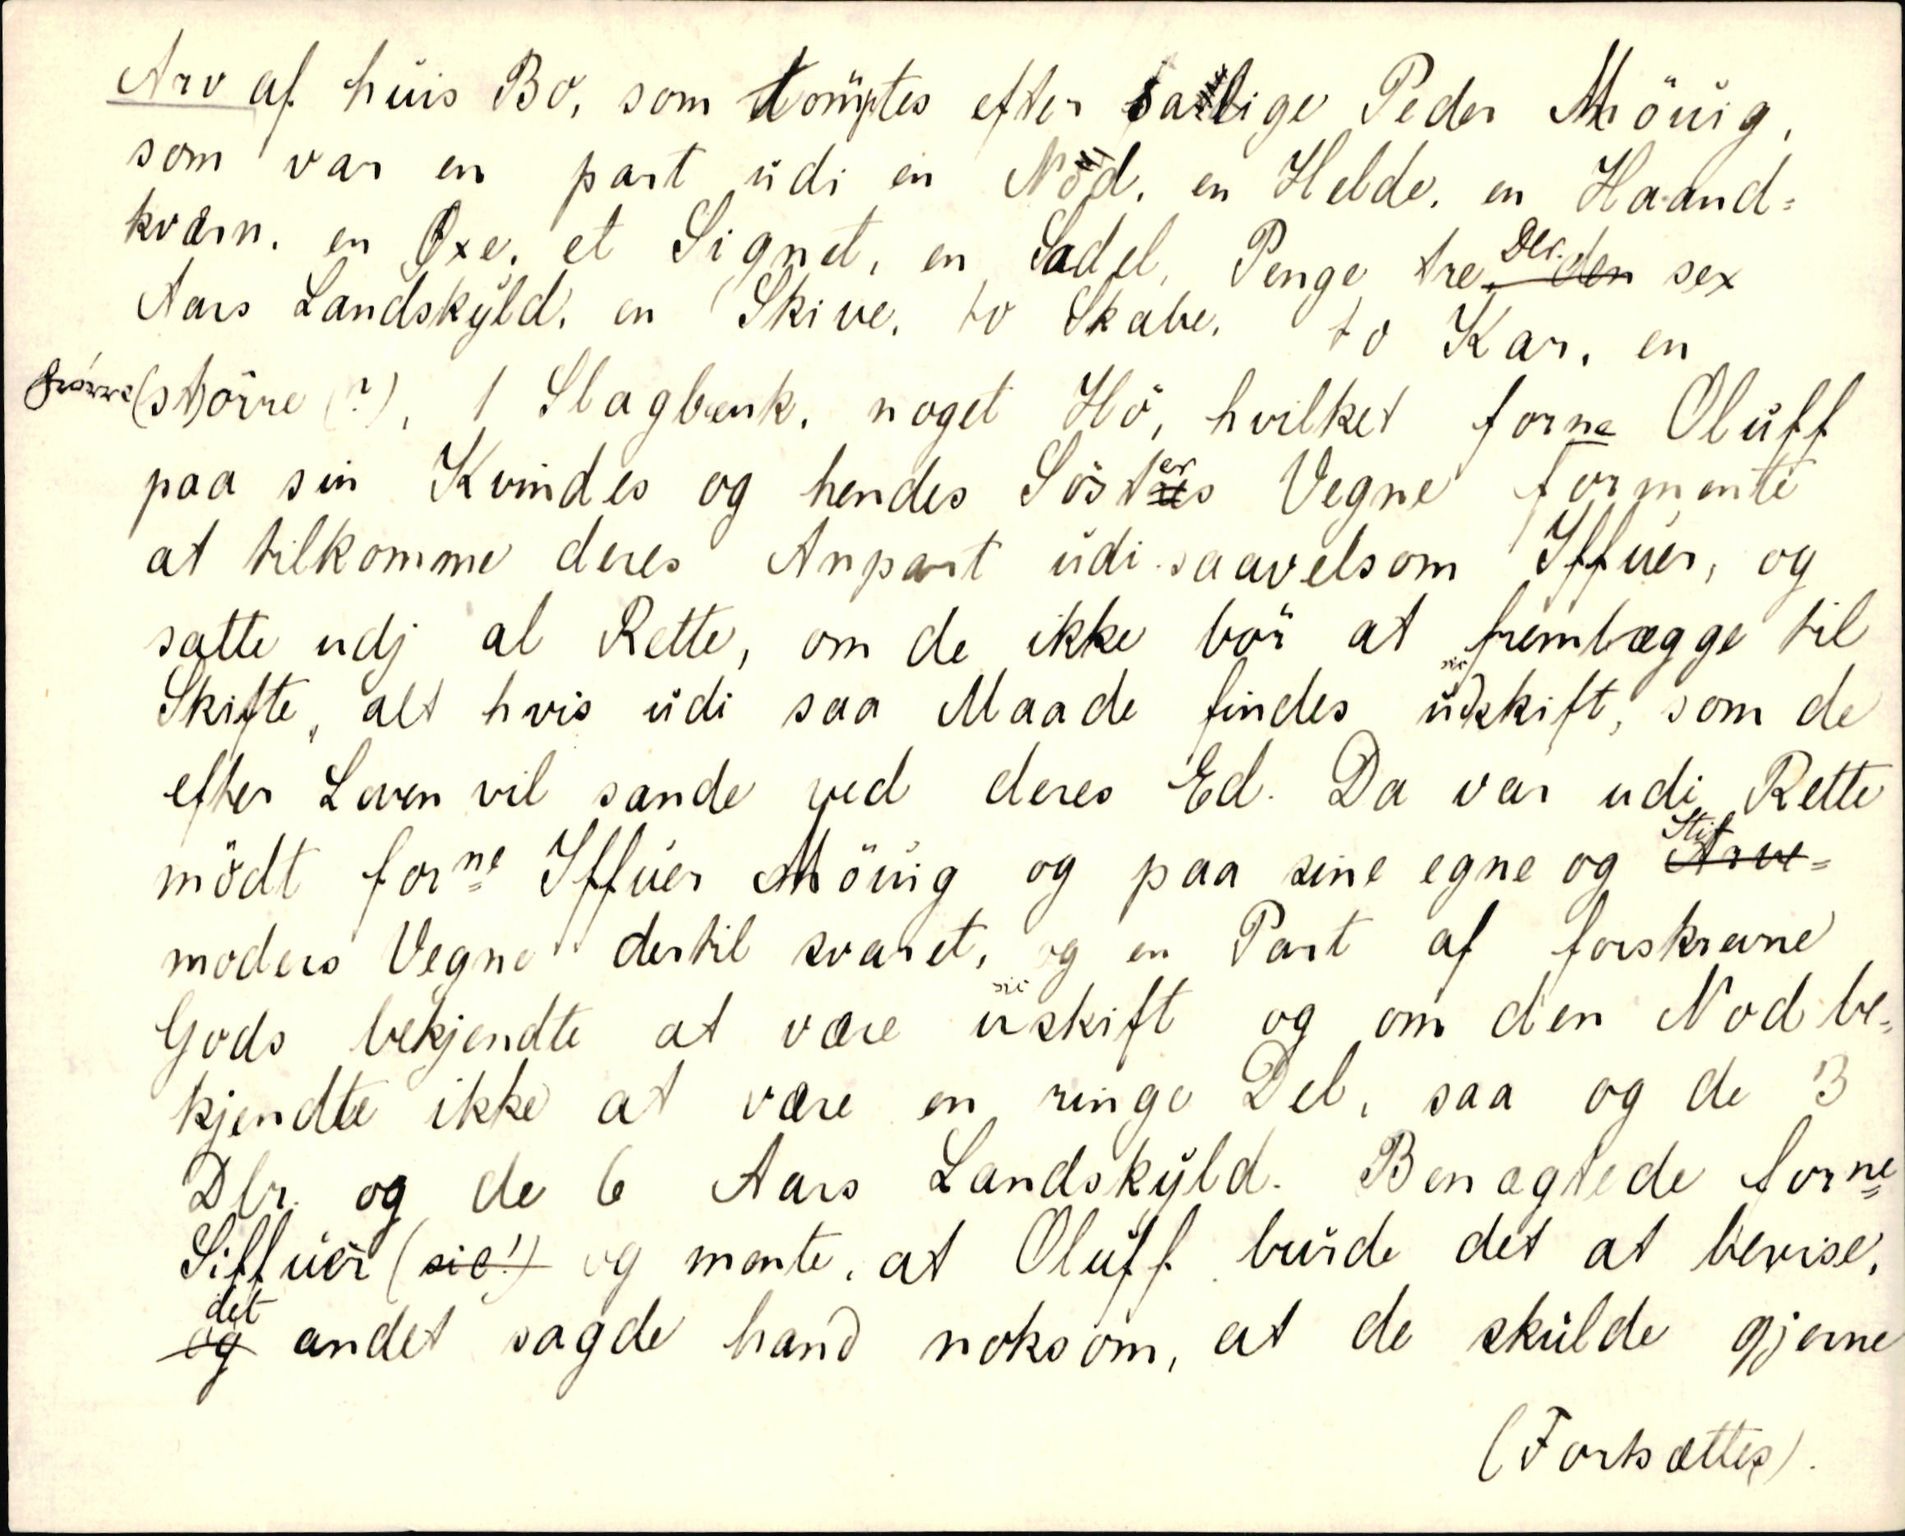 Arv af huis Bo, som tomptes efter salige Peder Möuig,
som var en part udi en Nod, en Helde, en Haand=
kværn, en Oxe, et Signet, en Sadel, Penge tre Dlr. den sex
Aars Landskyld, en Skive, to Skabe, to Kar, en
(st)örre (?), 1 Slagbænk, noget Hö, hvilket forne Oluff
paa sin Kvindes og hendes Sösters Vegne formente
at tilkomme deres Anpart udi saavelsom Iffuer, og
satte udj al Rette, om de ikke bör at fremlægge til
Skifte, alt hvis udi saa Maade findes uskift, sic som de
efter Loven vil sande ved deres Ed. Da var udi Rette
mödt forne Iffuer Möuig og paa sine egne og Stif Arve=
moders Vegne dertil svaret, og en Part af forskrevne
Gods bekjendte at være uskift sic og om den Nod be=
kjendte ikke at være en ringe Del, saa og de 3
Dlr. og de 6 Aars Landskyld. Benægtede forne
Siffuer (sic!) og mente, at Oluff burde det at bevise,
og det andet sagde hand noksom, at de skulde gjerne
(Fortsættes).